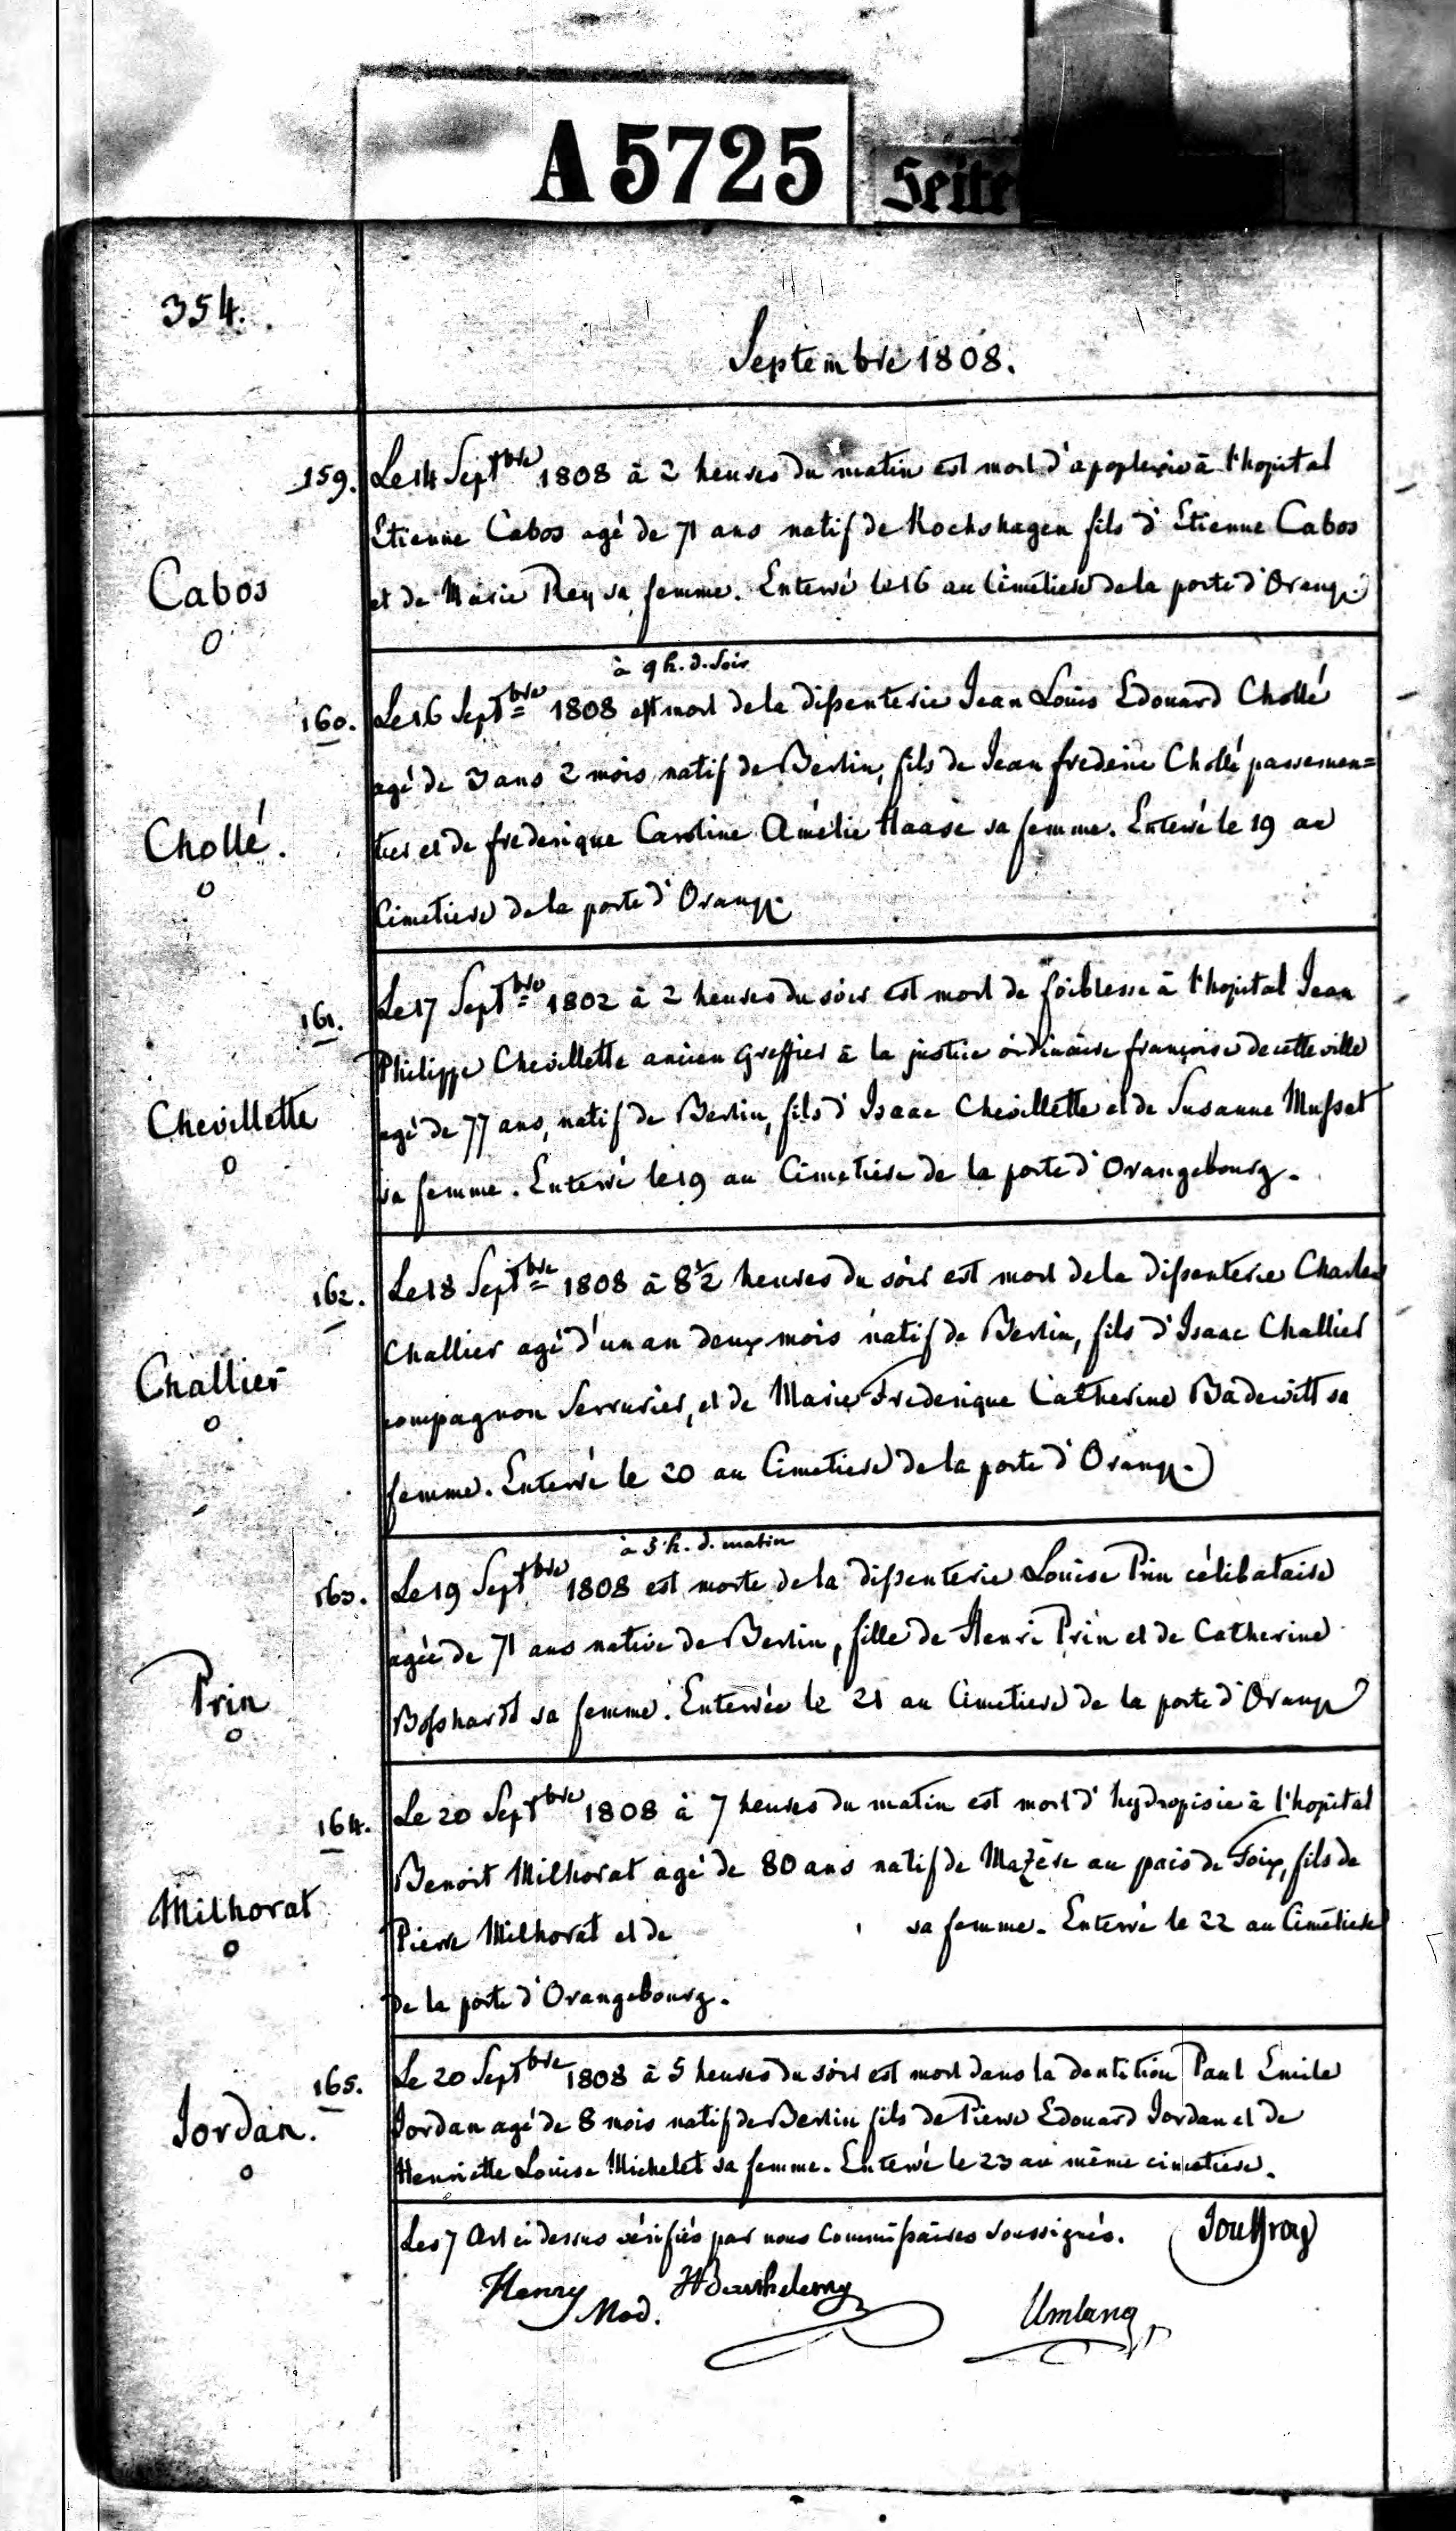 A 5725
Seite
354.
Septembre 1808.
159. Le 14 Septbre 1808 à 2 heures du matin est mort d'apoplexie à l'hopital
Etienne Cabos agé de 71 ans natif de Kochshagen fils d'Etienne Cabos
Cabos
et de Marie Rey sa femme. Enterré le 16 au Cimétiere de la porte d'Orang.
à 9 h. d. soir
160. Le 16 Septbre 1808 est mort de la dissenterie Jean Louis Edouard Chollé
agé de 3 ans 2 mois natif de Berlin, fils de Jean frederic Chollé passemen=
Chollé.
tier et de frederique Caroline Amélie Haase sa femme. Enterré le 19 au
Cimetiere de la porte d'Orang.
161. Le 17 Septbre 1802 à 2 heures du soir est mort de foiblesse à l'hopital Jean
Philippe Chevillette ancien Greffier à la justice ordinaire françoise de cette ville
Chevillette
agé de 77 ans, natif de Berlin, fils d'Isaac Chevillette et de Susanne Musset
sa femme. Enterré le 19 au Cimetiere de la porte d'Orangebourg.
162. Le 18 Septbre 1808 à 8 1/2 heures du soir est mort de la dissenterie Charles
Challier agé d'un an deux mois natif de Berlin, fils d'Isaac Challier
Challier
compagnon Serrurier, et de Marie Frederique Catherine Badewitt sa
femme. Enterré le 20 au Cimetiere de la porte d'Orang.
à 3 h. d. matin
163. Le 19 Septbre 1808 est morte de la dissenterie Louise Prin célibataire
agée de 71 ans native de Berlin, fille de Henri Prin et de Catherine
Prin
Bosshardt sa femme. Enterrée le 21 au Cimetiere de la porte d'Orang
164. Le 20 Septbre 1808 à 7 heures du matin est mort d'hydropisie à l'hopital
Benoit Milhorat agé de 80 ans natif de Mazère au païs de Foix, fils de
Milhorat
Pierre Milhorat et de sa femme. Enterré le 22 au Cimétiere
de la porte d'Orangebourg.
165. Le 20 Septbre 1808 à 5 heures du soir est mort dans la dentition Paul Emile
Jordan.
Jordan agé de 8 mois natif de Berlin fils de Pierre Edouard Jordan et de
Henriette Louise Michelet sa femme. Enterré le 23 au même cimetiere.
Les 7 Art ci dessus vérifiés par nous Commissaires soussignés. Jouffroy
Henry Mod. Barthelemy Umlang